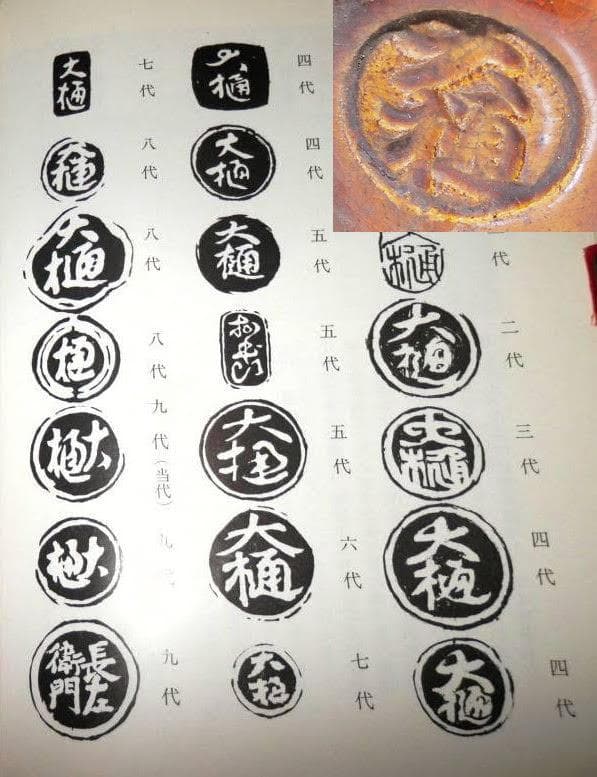 大樋
大樋
代
大樋
二代
大樋
三代
大樋
四代
大樋
四代
大樋
四代
大樋
四代
大樋
五代
五代
大樋
五代
大樋
六代
大樋
七代
大樋
七代
大樋
八代
大樋
八代
大樋
八代
大樋
九代(当代)
大樋
九代
長左衛門
九代